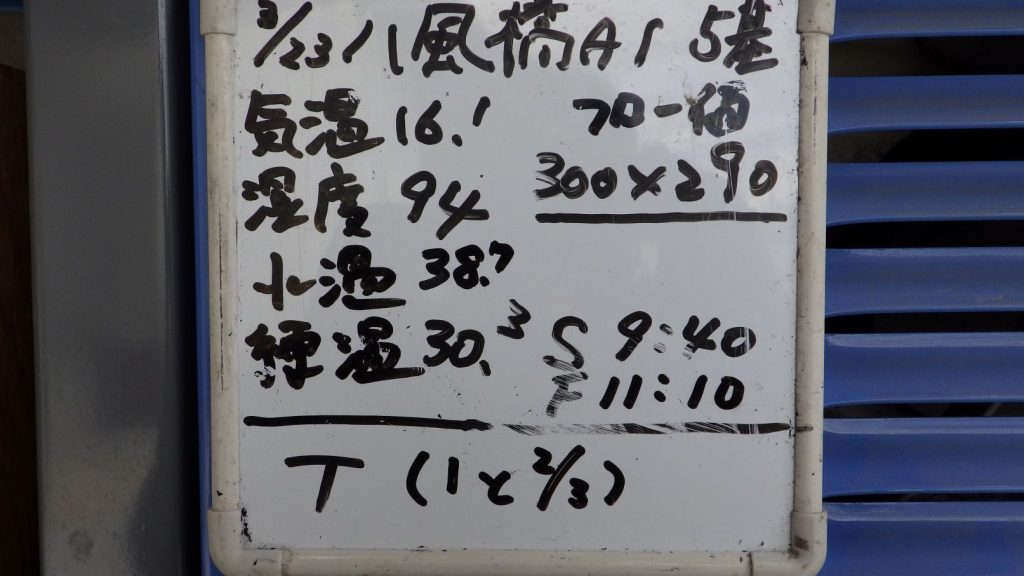 3/23 八風橋A1 5基
気温 16.1 フロー価
湿度 94 300×290
水温 38.7
練温 30.3 S 9:40
F 11:10
T (1と2/3)